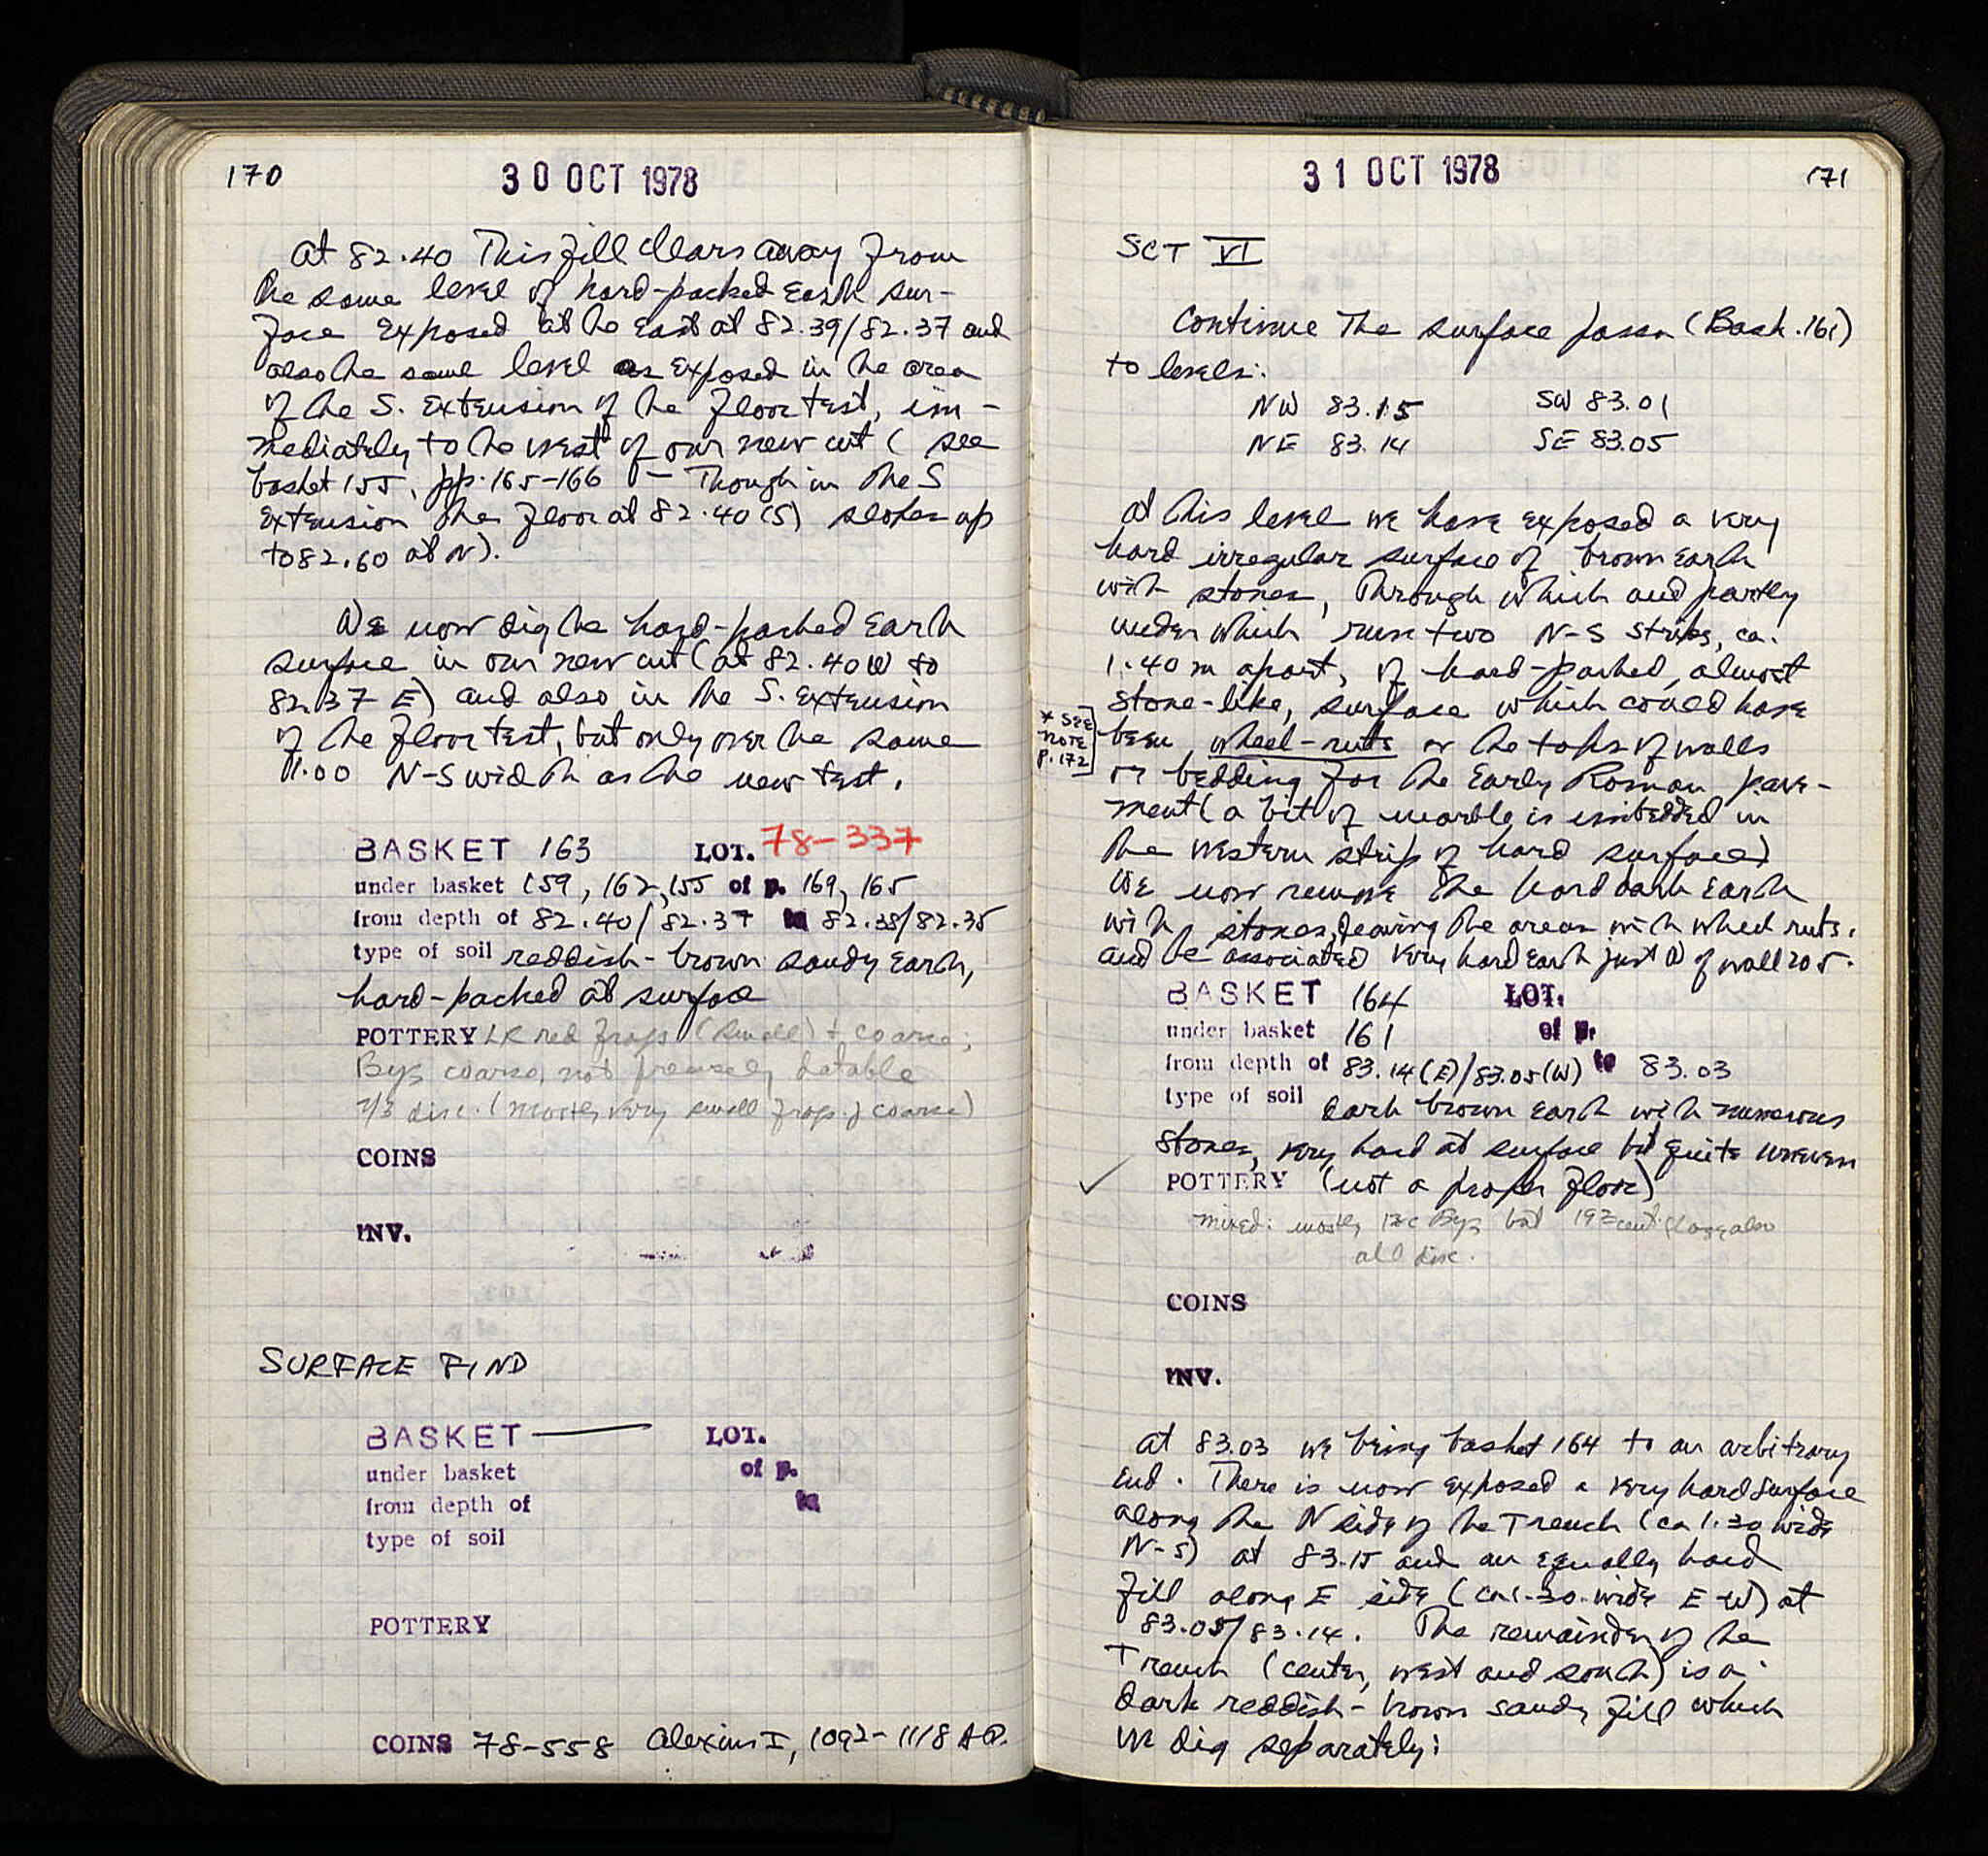 170
30 OCT 1978
at 82.40 This fill clears away from
the same level of hard-packed earth sur-
face exposed at the east at 82.39/82.37 and
also the same level as exposed in the area
of the S. extension of the floor test, im-
mediately to the west of our new cut ( see
basket 155, pp. 165-166 - Though in the S
extension the floor at 82.40 (S) slopes up
to 82.60 at N).
We now dig the hard-packed earth
surface in our new cut (at 82.40 W to
82.37 E) and also in the S. extension
of the floor test, but only over the same
1.00 N-S width as the new test.
BASKET 163 LOT. 78-337
under basket 159, 162, 155 of p. 169, 165
from depth of 82.40/82.37 to 82.38/82.35
type of soil reddish-brown sandy earth,
hard-packed at surface
POTTERY LR red frags (small) + coarse;
Byz coarse, not precisely datable
2/3 disc. (mostly very small frags of coarse)
COINS
INV.
SURFACE FIND
BASKET — LOT.
under basket of p.
from depth of to
type of soil
POTTERY
COINS 78-558 Alexius I, 1092-1118 A.D.
31 OCT 1978
171
SCT VI
Continue the surface passa (Bask. 161)
to levels:
NW 83.15 SW 83.01
NE 83.14 SE 83.05
at this level we have exposed a very
hard irregular surface of brown earth
with stones, through which and partly
under which run two N-S strips, ca.
1.40 m apart, of hard-packed, almost
stone-like, surface which could have
* SEE NOTE p. 172
been wheel-ruts or the tops of walls
or bedding for the Early Roman pave-
ment (a bit of marble is imbedded in
the western strip of hard surface)
We now remove the hard dark earth
with stones, leaving the areas with wheel ruts.
and the associated very hard earth just W of wall 205.
BASKET 164 LOT.
under basket 161 of p.
from depth of 83.14 (E)/83.05 (W) to 83.03
type of soil dark brown earth with numerous
stones, very hard at surface but quite uneven
POTTERY (not a proper floor)
mixed: mostly 12c Byz but 19th cent. also
all disc.
COINS
INV.
at 83.03 we bring basket 164 to an arbitrary
end. There is now exposed a very hard surface
along the N side of the Trench (ca 1.30 wide
N-S) at 83.15 and an equally hard
fill along E side (ca 1.30 wide E-W) at
83.05/83.14. The remainder of the
Trench (center, west and south) is a
dark reddish-brown sandy fill which
we dig separately: